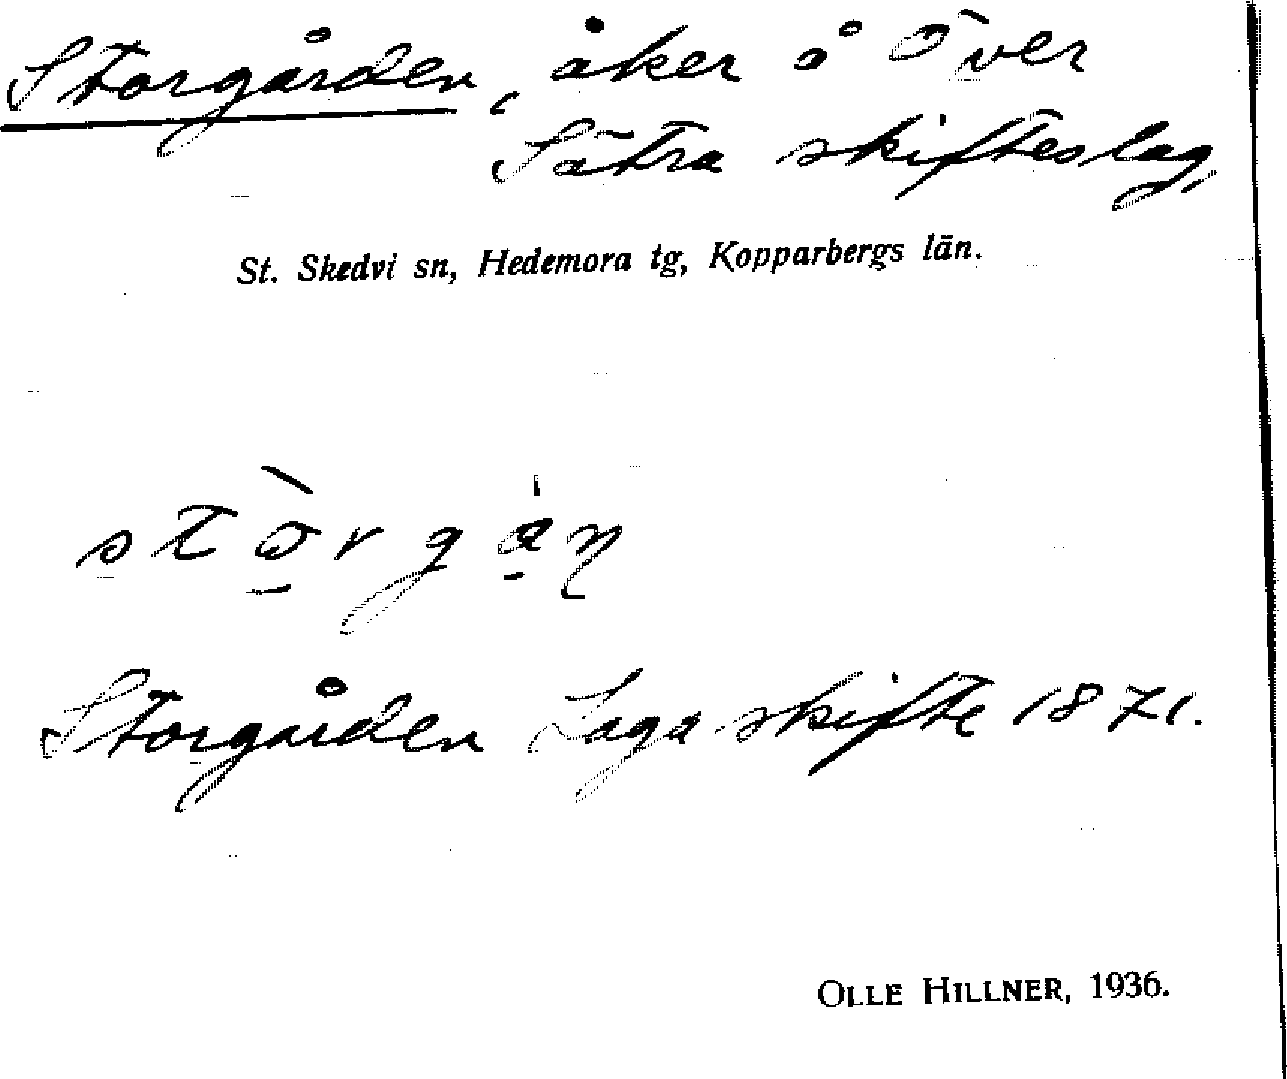 Storgården, åker å Över
Sätra skifteslag,
St. Skedvi sn, Hedemora tg, Kopparbergs län.
Storgården Laga skifte 1871.
OLLE HILLNER, 1936.